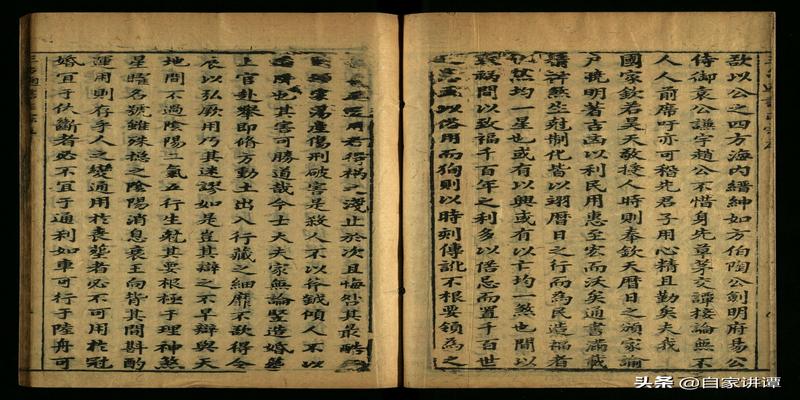 以公之四方海内縉紳如方伯陶公劍明府易公
侍御袁公謙宇趙公不惜身先章茅交譚接論無不
人人前席吁亦可稽先君子用心精且勤矣夫我
國家欽若昊天敬授人時則奉欽天曆日之頒家諭
戶曉明著吉凶以利民用惠至宏而沃矣通書滿載
諸神煞生尅制化皆以翊曆日之行而為民造福者
也然均一星也或有以興或有以亡均一煞也間以
致禍間以致福千百年之利多以偕忌而置千百世
之忌盃以俗用而徇則以時刻傳訛不根要領為之
用者得禍之淺止於次且悔吝其最酷
蕩產傷刑破害是殺人不以斧鉞傾人不以
也其害可勝道哉今士大夫家無論豎造婚葬
上官赴舉即脩方動土出入行藏之細靡不欲得令
辰以弘厥用乃其迷謬如是豈其辯之不早辯與天
地間不過陰陽二氣五行生尅其要根極于理神煞
星曜名號雖殊總之陰陽消息衰王向背其間斟酌
運用則存乎人之變通用於喪塟者必不可用於冠
婚宜于伏斷者必不宜于通利如車可行于陸舟可
头条 @自家讲谭